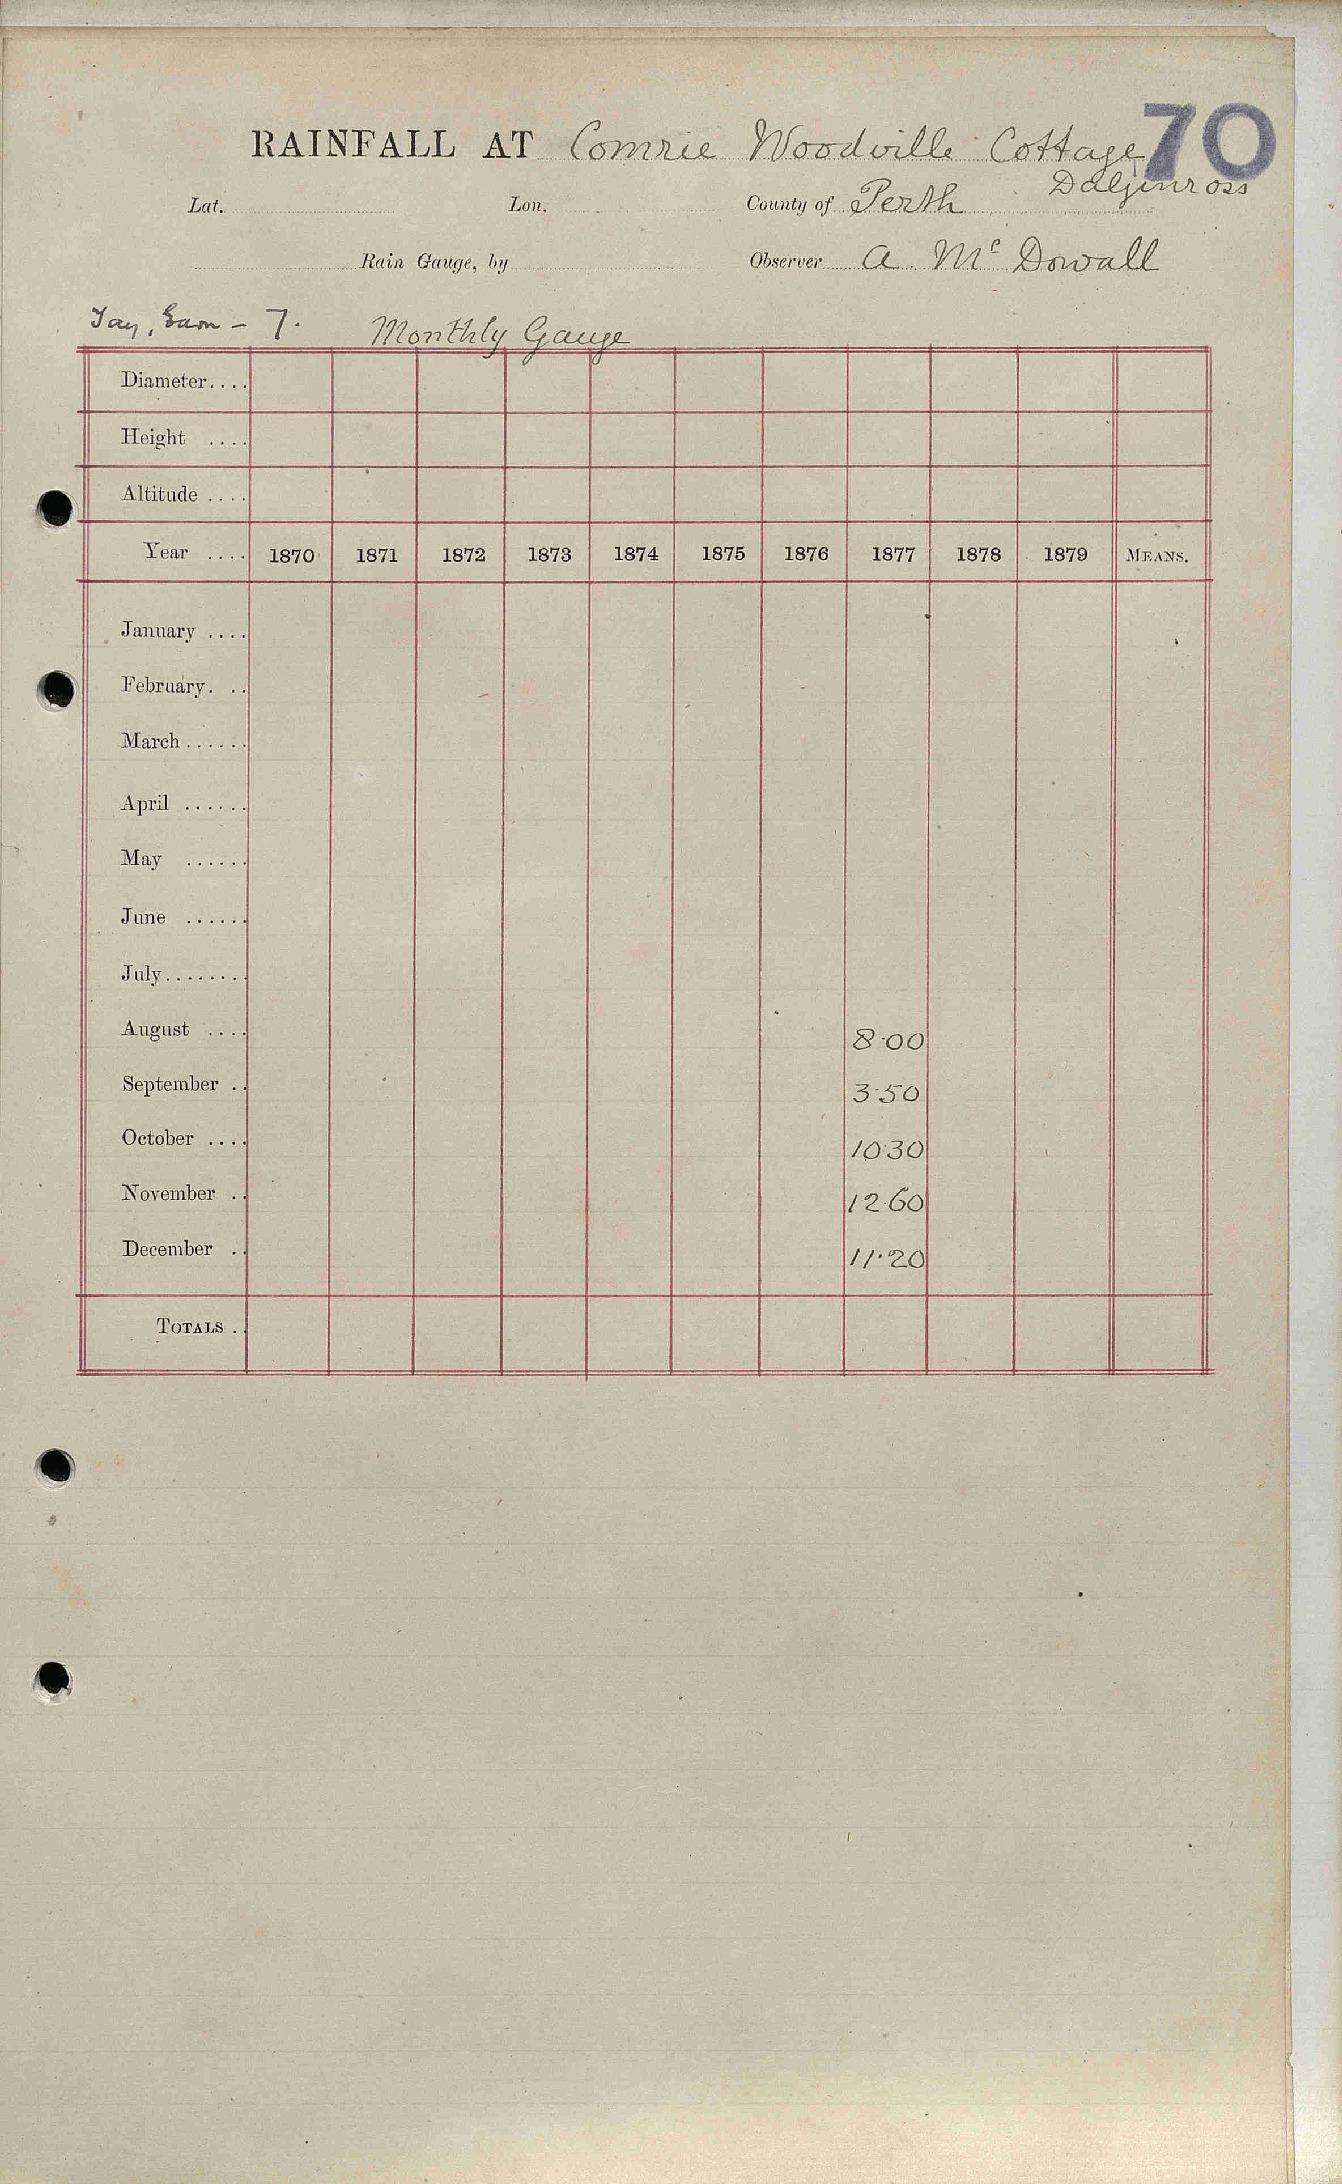 70
RAINFALL AT Comrie Woodville Cottage
Dalginross
Lat. Lon. County of Perth
Rain Gauge, by Observer A. Mc Dowall
Tay, Earn - 7. Monthly Gauge
Diameter....
Height ....
Altitude ....
Year .... 1870 1871 1872 1873 1874 1875 1876 1877 1878 1879 MEANS.
January ....
February. ..
March......
April ......
May ......
June ......
July........
August .... 8.00
September .. 3.50
October .... 10.30
November .. 12.60
December .. 11.20
TOTALS ..